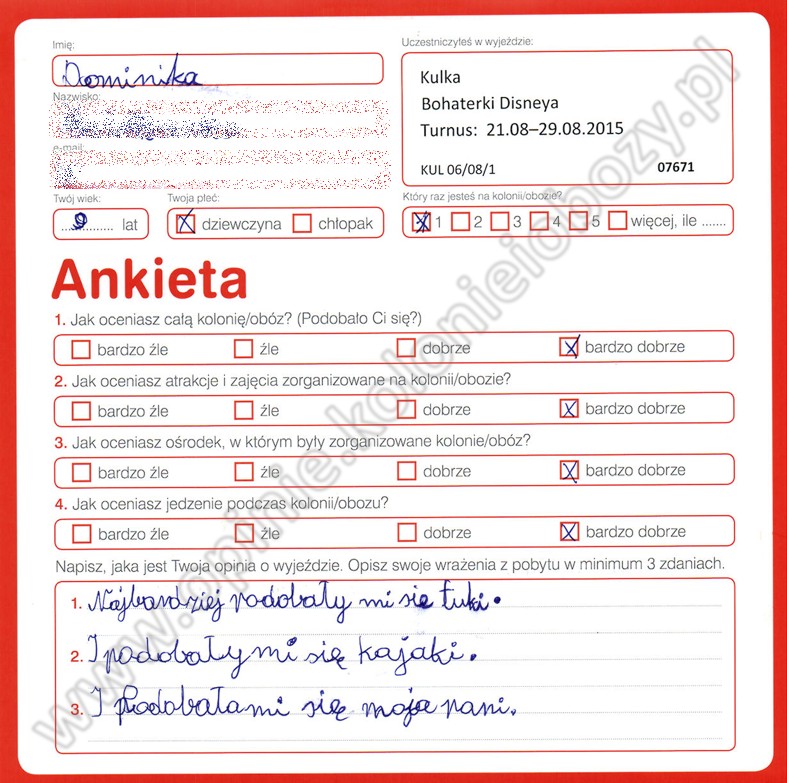 Imię:
Dominika
Nazwisko:
e-mail:
Twój wiek:
9 lat
Twoja płeć:
dziewczyna chłopak
Uczestniczyłeś w wyjeździe:
Kulka
Bohaterki Disneya
Turnus: 21.08–29.08.2015
KUL 06/08/1 07671
Który raz jesteś na kolonii/obozie?
1 2 3 4 5 więcej, ile .......
Ankieta
1. Jak oceniasz całą kolonię/obóz? (Podobało Ci się?)
bardzo źle źle dobrze bardzo dobrze
2. Jak oceniasz atrakcje i zajęcia zorganizowane na kolonii/obozie?
bardzo źle źle dobrze bardzo dobrze
3. Jak oceniasz ośrodek, w którym były zorganizowane kolonie/obóz?
bardzo źle źle dobrze bardzo dobrze
4. Jak oceniasz jedzenie podczas kolonii/obozu?
bardzo źle źle dobrze bardzo dobrze
Napisz, jaka jest Twoja opinia o wyjeździe. Opisz swoje wrażenia z pobytu w minimum 3 zdaniach.
1. Najbardziej podobały mi się łuki.
2. I podobały mi się kajaki.
3. I Podobała mi się moja pani.
www.opinie.kolonieiobozy.pl